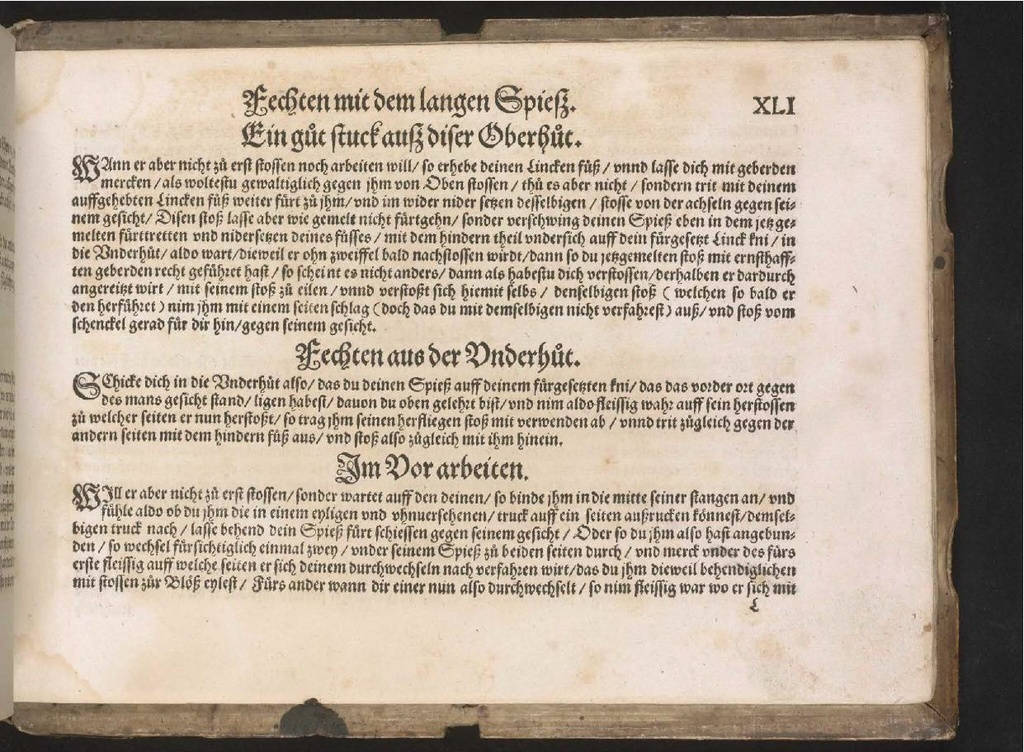 Fechten mit dem langen Spieß.
XLI
Ein gůt stuck auß diser Oberhůt.
WAnn er aber nicht zů erst stossen noch arbeiten will/ so erhebe deinen Lincken fůß/ vnnd lasse dich mit geberden
mercken/ als woltestu gewaltiglich gegen jhm von Oben stossen/ thů es aber nicht/ sondern trit mit deinem
auffgehebten Lincken fůß weiter fürt zů jhm/ vnd im wider nider setzen desselbigen/ stosse von der achseln gegen sei-
nem gesicht/ Disen stoß lasse aber wie gemelt nicht fürtgehn/ sonder verschwing deinen Spieß eben in dem jetzge-
melten fürttretten vnd nidersetzen deines fůsses/ mit dem hindern theil vndersich auff dein fürgesetzt Linck kni/ in
die Vnderhůt/ aldo wart/ dieweil er ohn zweiffel bald nachstossen wirdt/ dann so du jetzgemelten stoß mit ernsthaff-
ten geberden recht geführet hast/ so scheint es nicht anders/ dann als habestu dich verstossen/ derhalben er dardurch
angereitzt wirt/ mit seinem stoß zů eilen/ vnnd verstoßt sich hiemit selbs/ denselbigen stoß ( welchen so bald er
den herführet ) nim jhm mit einem seiten schlag ( doch das du mit demselbigen nicht verfahrest ) auß/ vnd stoß vom
schenckel gerad für dir hin/ gegen seinem gesicht.
Fechten aus der Vnderhůt.
SChicke dich in die Vnderhůt also/ das du deinen Spieß auff deinem fürgesetzten kni/ das das vorder ort gegen
des mans gesicht stand/ ligen habest/ dauon du oben gelehrt bist/ vnd nim aldo fleissig wahr auff sein herstossen
zů welcher seiten er nun herstoßt/ so trag jhm seinen herfliegen stoß mit verwenden ab/ vnnd trit zůgleich gegen der
andern seiten mit dem hindern fůß aus/ vnd stoß also zůgleich mit ihm hinein.
Im Vor arbeiten.
WJll er aber nicht zů erst stossen/ sonder wartet auff den deinen/ so binde jhm in die mitte seiner stangen an/ vnd
fühle aldo ob du jhm die in einem eyligen vnd vhnuersehenen/ truck auff ein seiten außrucken könnest/ demsel-
bigen truck nach/ lasse behend dein Spieß fürt schiessen gegen seinem gesicht/ Oder so du jhm also hast angebun-
den/ so wechsel fürsichtiglich einmal zwey/ vnder seinem Spieß zů beiden seiten durch/ vnd merck vnder des fürs
erste fleissig auff welche seiten er sich deinem durchwechseln nach verfahren wirt/ das du jhm dieweil behendiglichen
mit stossen zůr Blöß eylest/ Fürs ander wann dir einer nun also durchwechselt/ so nim fleissig war wo er sich mit
L